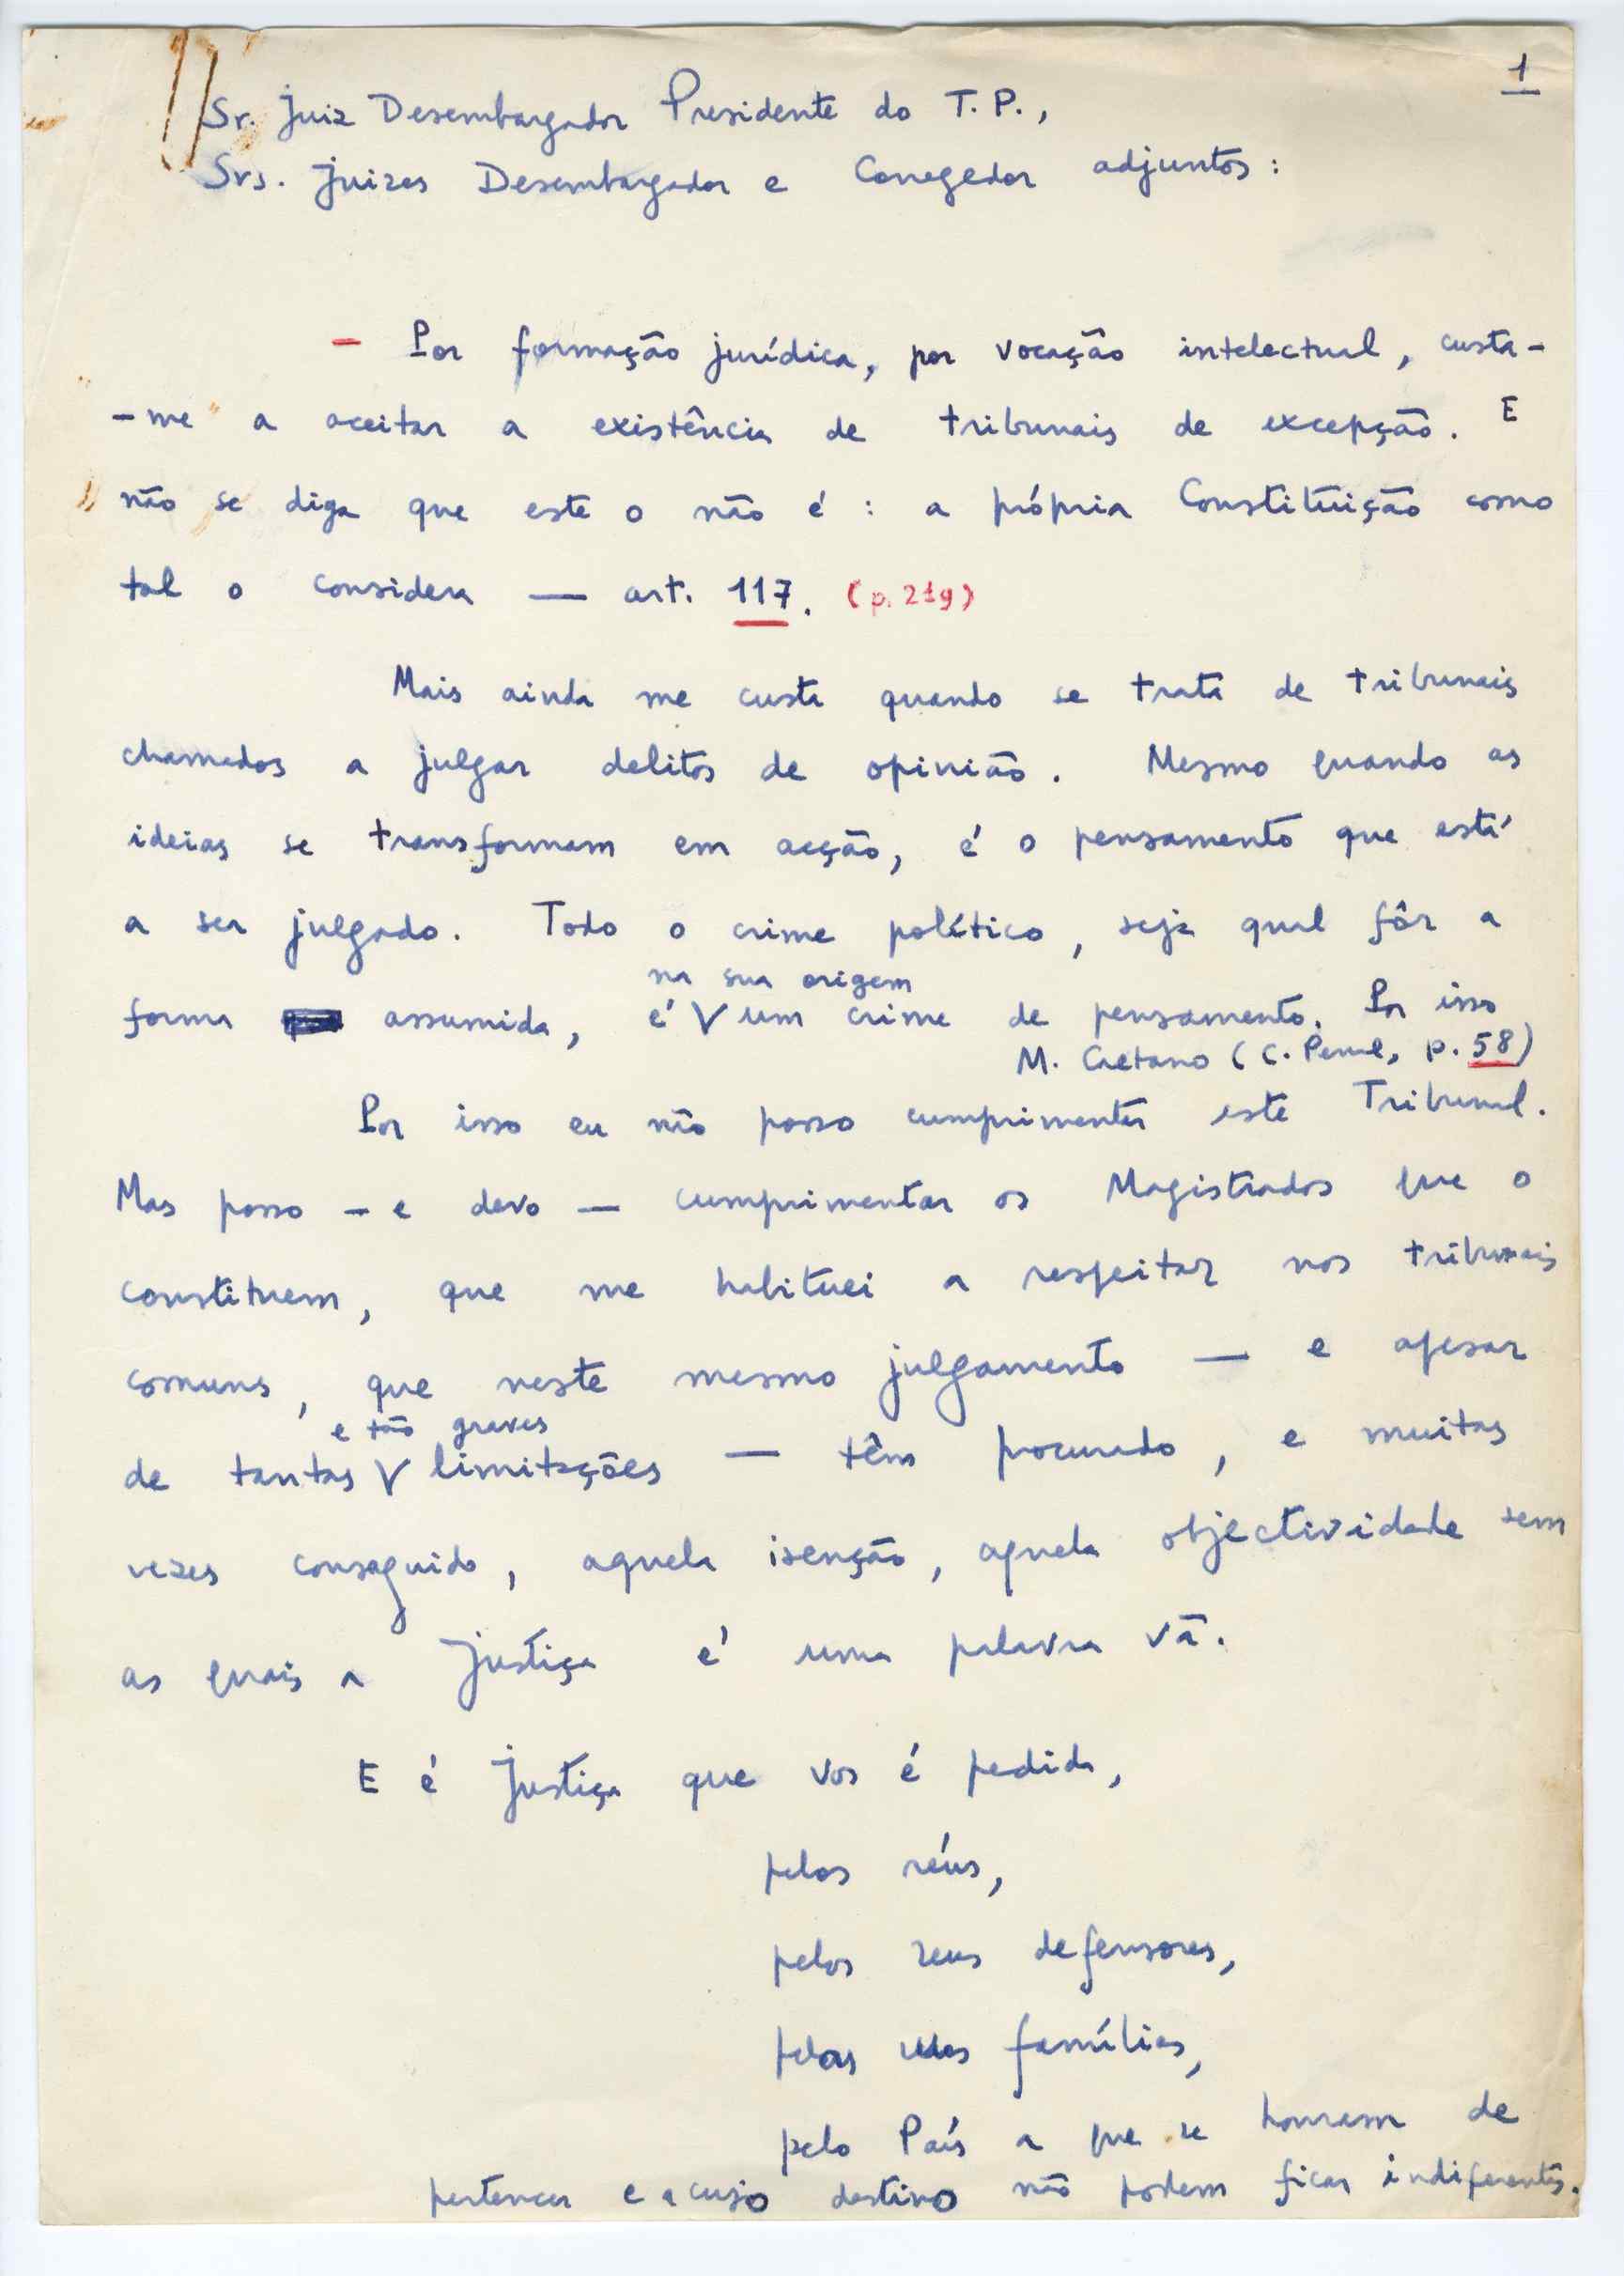 1
Sr. Juiz Desembargador Presidente do T. P.,
Srs. Juizes Desembargador e Corregedor adjuntos:
— Por formação jurídica, por vocação intelectual, custa-
-me a aceitar a existência de tribunais de excepção. E
não se diga que este o não é : a própria Constituição como
tal o considera — art. 117. (p. 219)
Mais ainda me custa quando se trata de tribunais
chamados a julgar delitos de opinião. Mesmo quando as
ideias se transformam em acção, é o pensamento que está
a ser julgado. Todo o crime político, seja qual fôr a
na sua origem
forma assumida, é V um crime de pensamento. Por isso
M. Caetano (C. Penal, p. 58)
Por isso eu não posso cumprimentar este Tribunal.
Mas posso — e devo — cumprimentar os Magistrados que o
constituem, que me habituei a respeitar nos tribunais
comuns, que neste mesmo julgamento — e apesar
e tão graves
de tantas V limitações — têm procurado, e muitas
vezes conseguido, aquela isenção, aquela objectividade sem
as quais a Justiça é uma palavra vã.
E é Justiça que vos é pedida,
pelos réus,
pelos seus defensores,
pelas suas famílias,
pelo País a que se honram de
pertencer e a cujo destino não podem ficar indiferentes.